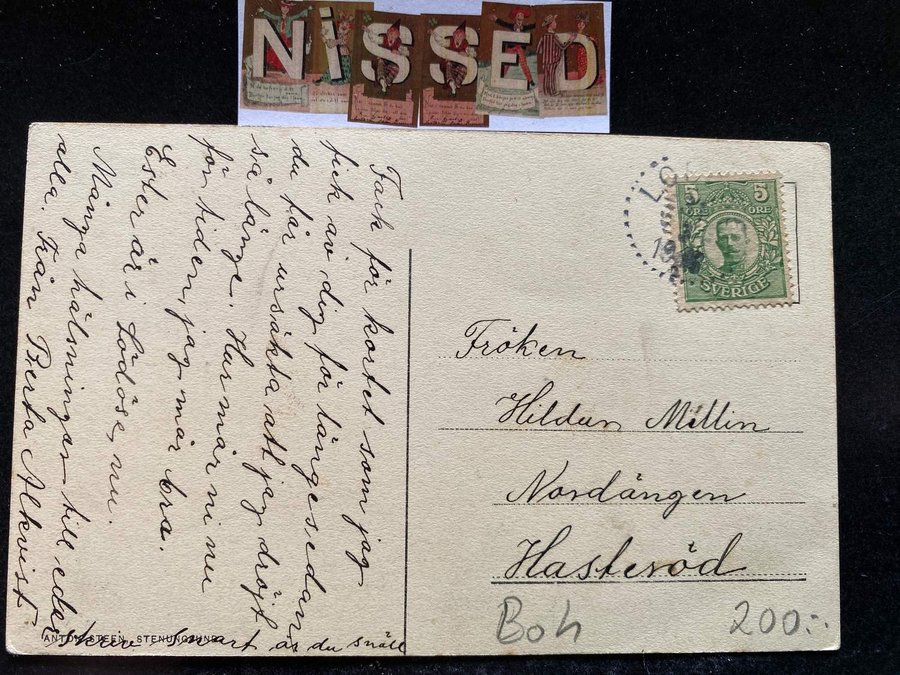 NISSED
Tack för kortet som jag
fick av dig för längesedan
du får ursäkta att jag dröjt
så länge. Hur mår ni nu
för tiden, jag mår bra.
Ester är i Lödöse nu.
Många hälsningar till eder
alla. Från Berta Alkvist.
skriv snart är du snäll
ANTON STEEN, STENUNGSUND
LÖ
19
5 5
ÖRE ÖRE
SVERIGE
Fröken
Hildur Mellin
Nordängen
Hasteröd
Boh 200:-